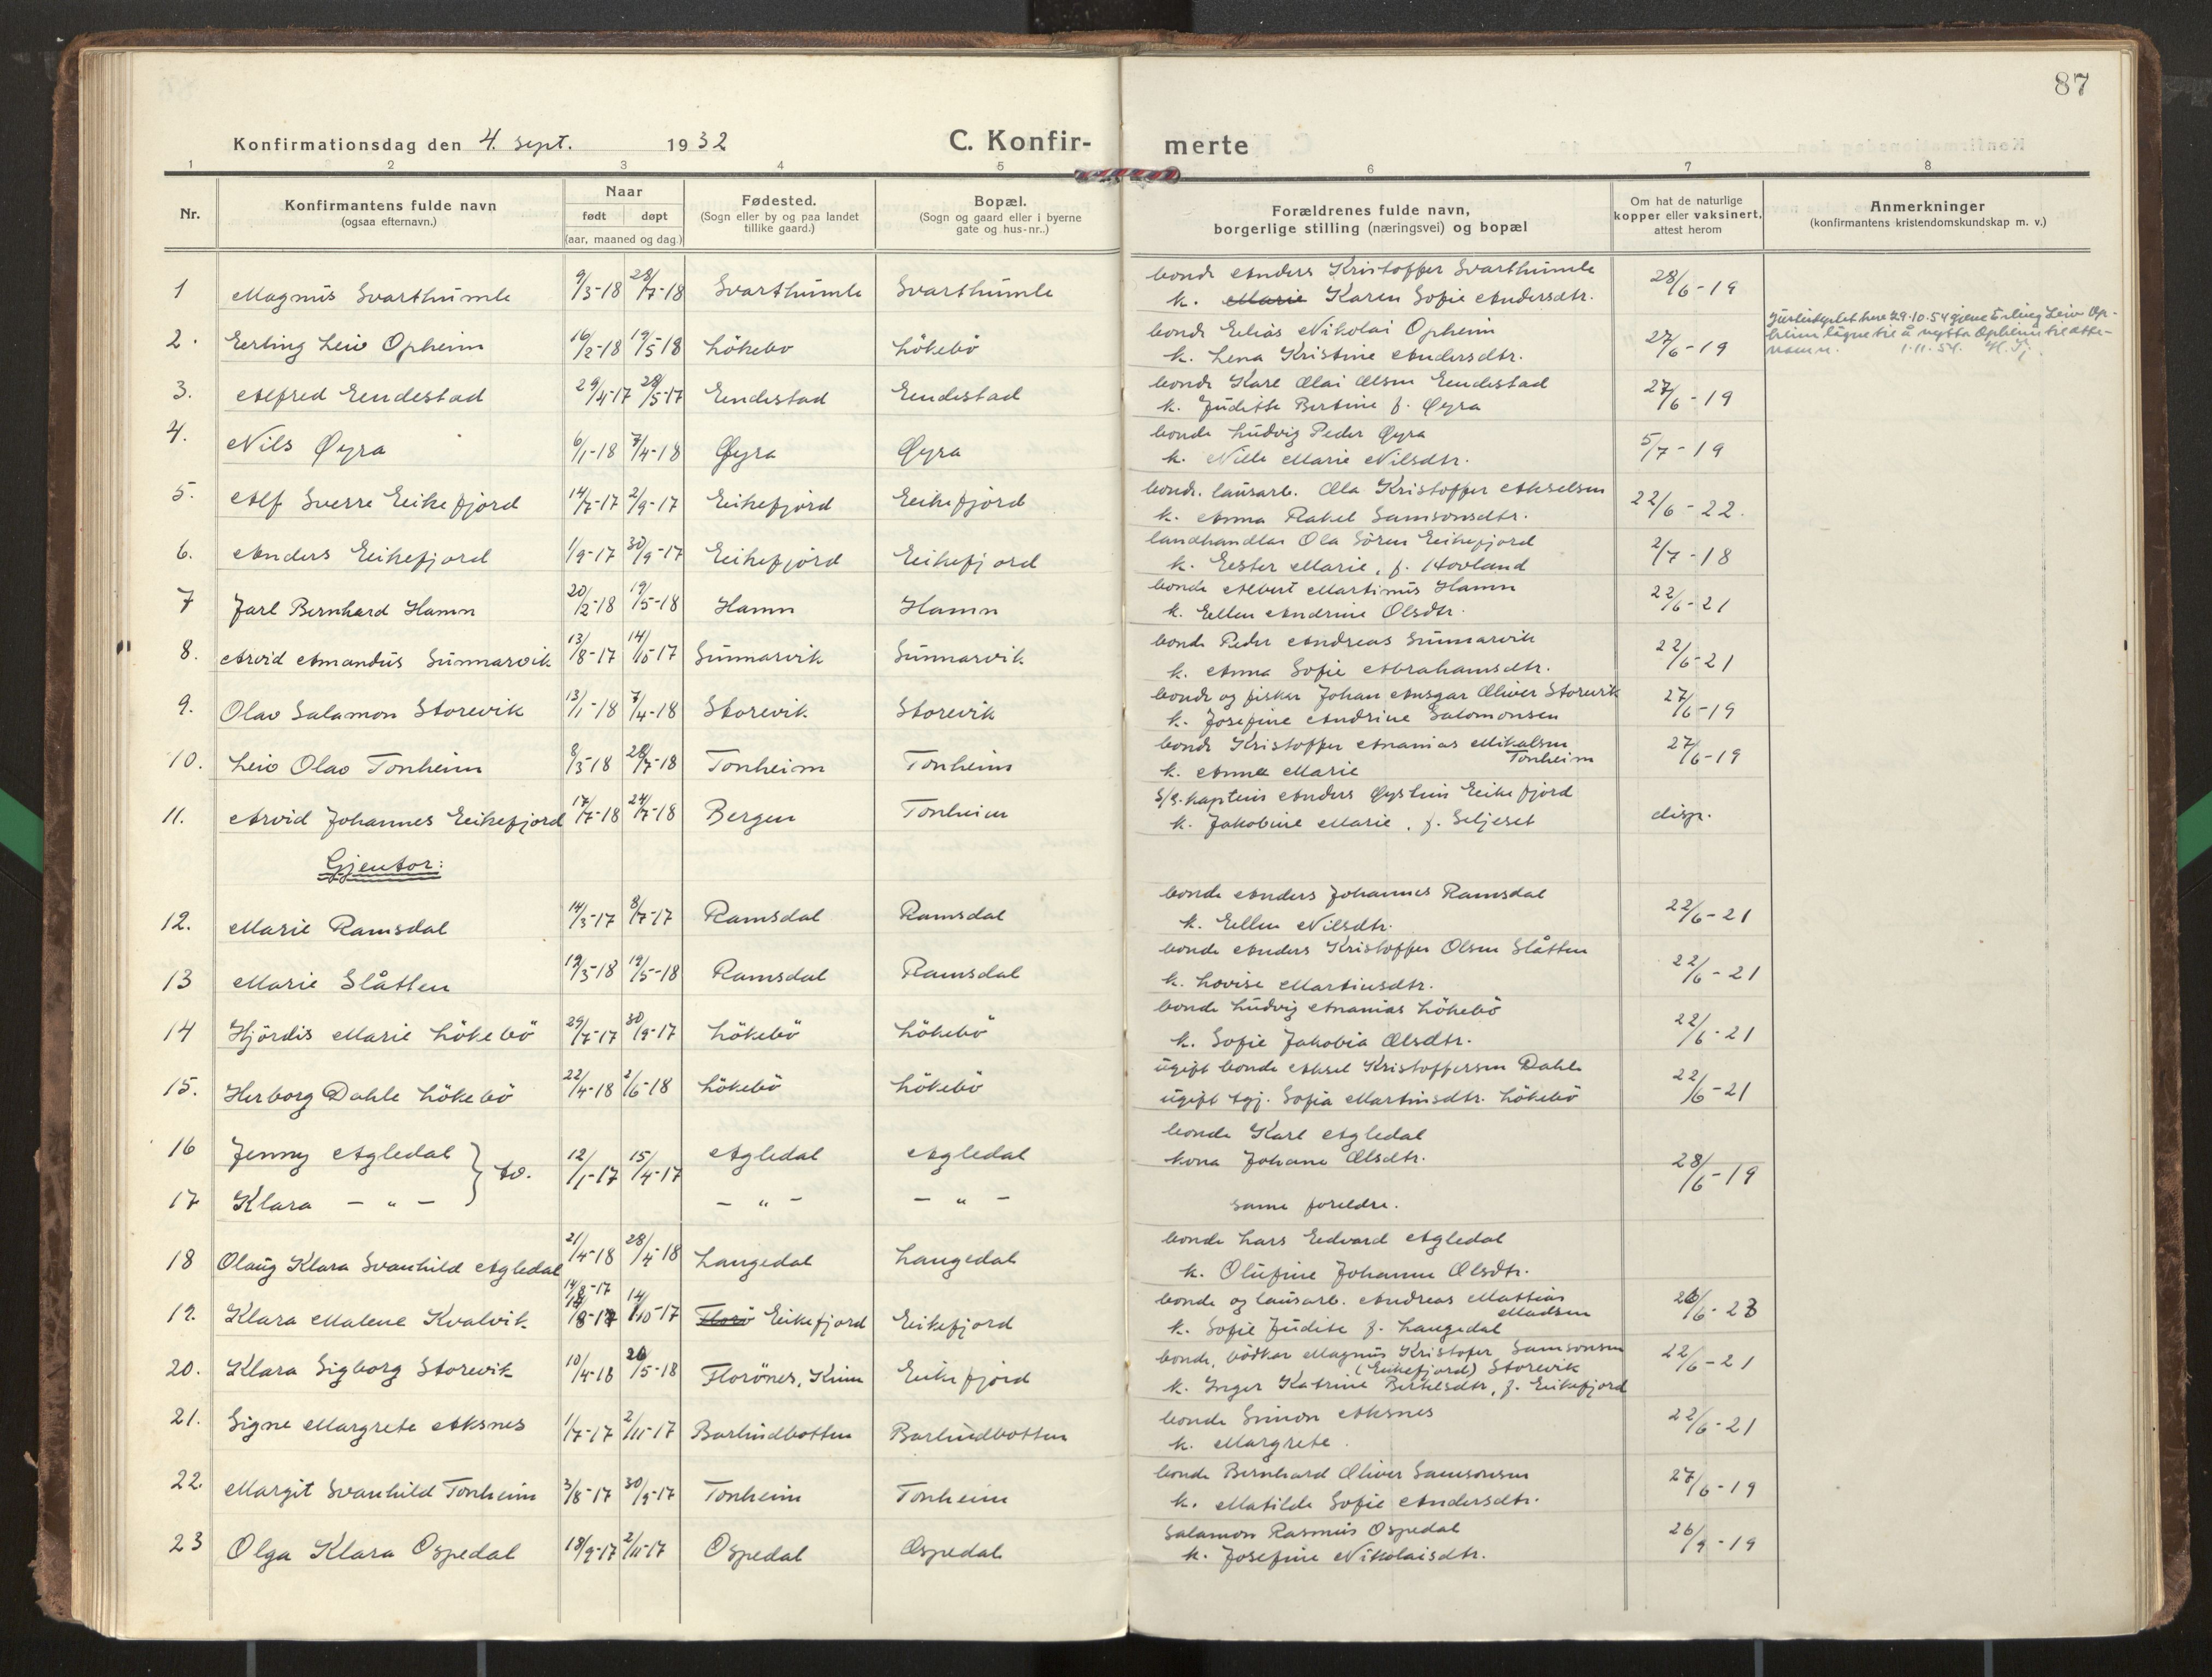 87
Konfirmationsdag den 4. sept. 1932
C. Konfirmerte
1 2 3 4 5 6 7 8
Nr.
Konfirmantens fulde navn
(ogsaa efternavn.)
Naar
født døpt
(aar, maaned og dag.)
Fødested.
(Sogn eller by og paa landet
tillike gaard.)
Bopæl.
(Sogn og gaard eller i byerne
gate og hus-nr..)
Forældrenes fulde navn,
borgerlige stilling (næringsvei) og bopæl
Om hat de naturlige
kopper eller vaksinert,
attest herom
Anmerkninger
(konfirmantens kristendomskundskap m. v.)
1 Magnus Svarthumle 9/3-18 28/7-18 Svarthumle Svarthumle bonde Anders Kristoffer Svarthumle 28/6-19
k. Marie Karen Sofie Andersdtr.
2. Erling Leiv Opheim 16/2-18 19/5-18 Løkebø Løkebö bonde Elias Nikolai Opheim 27/6-19
k. Lena Kristine Andersdtr.
29.10.54 Erling Leiv Op-
heim å nytta Opheim til ette-
namn. 1.11.54.
3. Alfred Endestad 29/4-17 28/5-17 Endestad Endestad bonde Karl Olai Olsen Endestad 27/6-19
k. Juditte Bertine f. Øyra
4. Nils Øyra 6/1-18 7/4-18 Øyra Øyra bonde Ludvig Peder Øyra 5/7-19
k. Nille Marie Nilsdtr.
5. Alf Sverre Eikefjord 14/7-17 2/9-17 Eikefjord Eikefjord bonde. lausarb. Ola Kristoffer Akselsen 22/6-22.
k. Anna Rakel Samsonsdtr.
6. Anders Eikefjord 1/9-17 30/9-17 Eikefjord Eikefjord landhandlar Ola Sören Eikefjord 2/7-18
k. Ester Marie, f. Hovland
7 Jarl Bernhard Hamn 20/2-18 19/5-18 Hamn Hamn bonde Albert Martinus Hamn 22/6-21
k. Ellen Andrine Olsdtr.
8. Arvid Amandus Sunnarvik 13/8-17 14/10-17 Sunnarvik Sunnarvik bonde Peder Andreas Sunnarvik 22/6-21
k. Anna Sofie Abrahamsdtr.
9. Olav Salamon Storevik 13/1-18 7/4-18 Storevik Storevik bonde og fisker Johan Ansgar Oliver Storevik 27/6-19
k. Josefine Andrine Salomonsen
10. Leiv Olav Tonheim 8/5-18 28/7-18 Tonheim Tonheim bonde Kristoffer Ananias Mikalsen 27/6-19
Tonheim
k. Anna Marie
11. Arvid Johannes Eikefjord 17/7-18 24/7-18 Bergen Tonheim S/S. kaptein Anders Øystein Eikefjord disp.
k. Jakobine Marie, f. Seljeset
Gjentor:
12. Marie Ramsdal 14/3-17 8/7-17 Ramsdal Ramsdal bonde Anders Johannes Ramsdal 22/6-21
k. Ellen Nilsdtr.
13 Marie Slåtten 19/3-18 19/5-18 Ramsdal Ramsdal bonde Anders Kristoffer Olsen Slåtten 22/6-21
k. Lovise Martinsdtr.
14 Hjördis Marie Lökebö 29/7-17 30/9-17 Lökebö Lökebö bonde Ludvig Ananias Lökebö 22/6-21
k. Sofie Jakobia Olsdtr.
15. Herborg Dahle Lökebö 22/4-18 2/6-18 Lökebö Lökebö ugift bonde Aksel Kristoffersen Dahle 22/6-21
ugift tgj. Sofia Martinsdtr. Lökebö
16 Jenny Agledal } tv. 12/1-17 15/4-17 Agledal Agledal bonde Karl Agledal 28/6-19
kona Johane Olsdtr.
17 Klara — " — — " — — " — same foreldre.
18 Olaug Klara Svanhild Agledal 21/4-18 28/4-18 Langedal Langedal bonde Lars Edvard Agledal
k. Olufine Johanne Olsdtr.
19. Klara Malene Kvalvik 14/8-17 14/10-17 Florö Eikefjord Eikefjord bonde og lausarb. Andreas Mattias 26/6-23
Madsen
k. Sofie Judite f. Langedal
20. Klara Sigborg Storevik 10/4-18 20/5-18 Florönes, Kinn Eikefjord bonde, bödker Magnus Kristofer Samsonsen 22/6-21
(Eikefjord) Storevik
k. Inger Katrine Bertelsdtr, f. Eikefjord
21. Signe Margrete Aksnes 1/7-17 2/11-17 Barlindbotten Barlindbotten bonde Simon Aksnes 22/6-21
k. Margrete.
22. Margit Svanhild Tonheim 3/8-17 30/9-17 Tonheim Tonheim bonde Bernhard Oliver Samsonsen 27/6-19
k. Matilde Sofie Andersdtr.
23 Olga Klara Ospedal 18/9-17 2/11-17 Ospedal Ospedal Salamon Rasmus Ospedal 26/9-19
k. Josefine Nikolaisdtr.